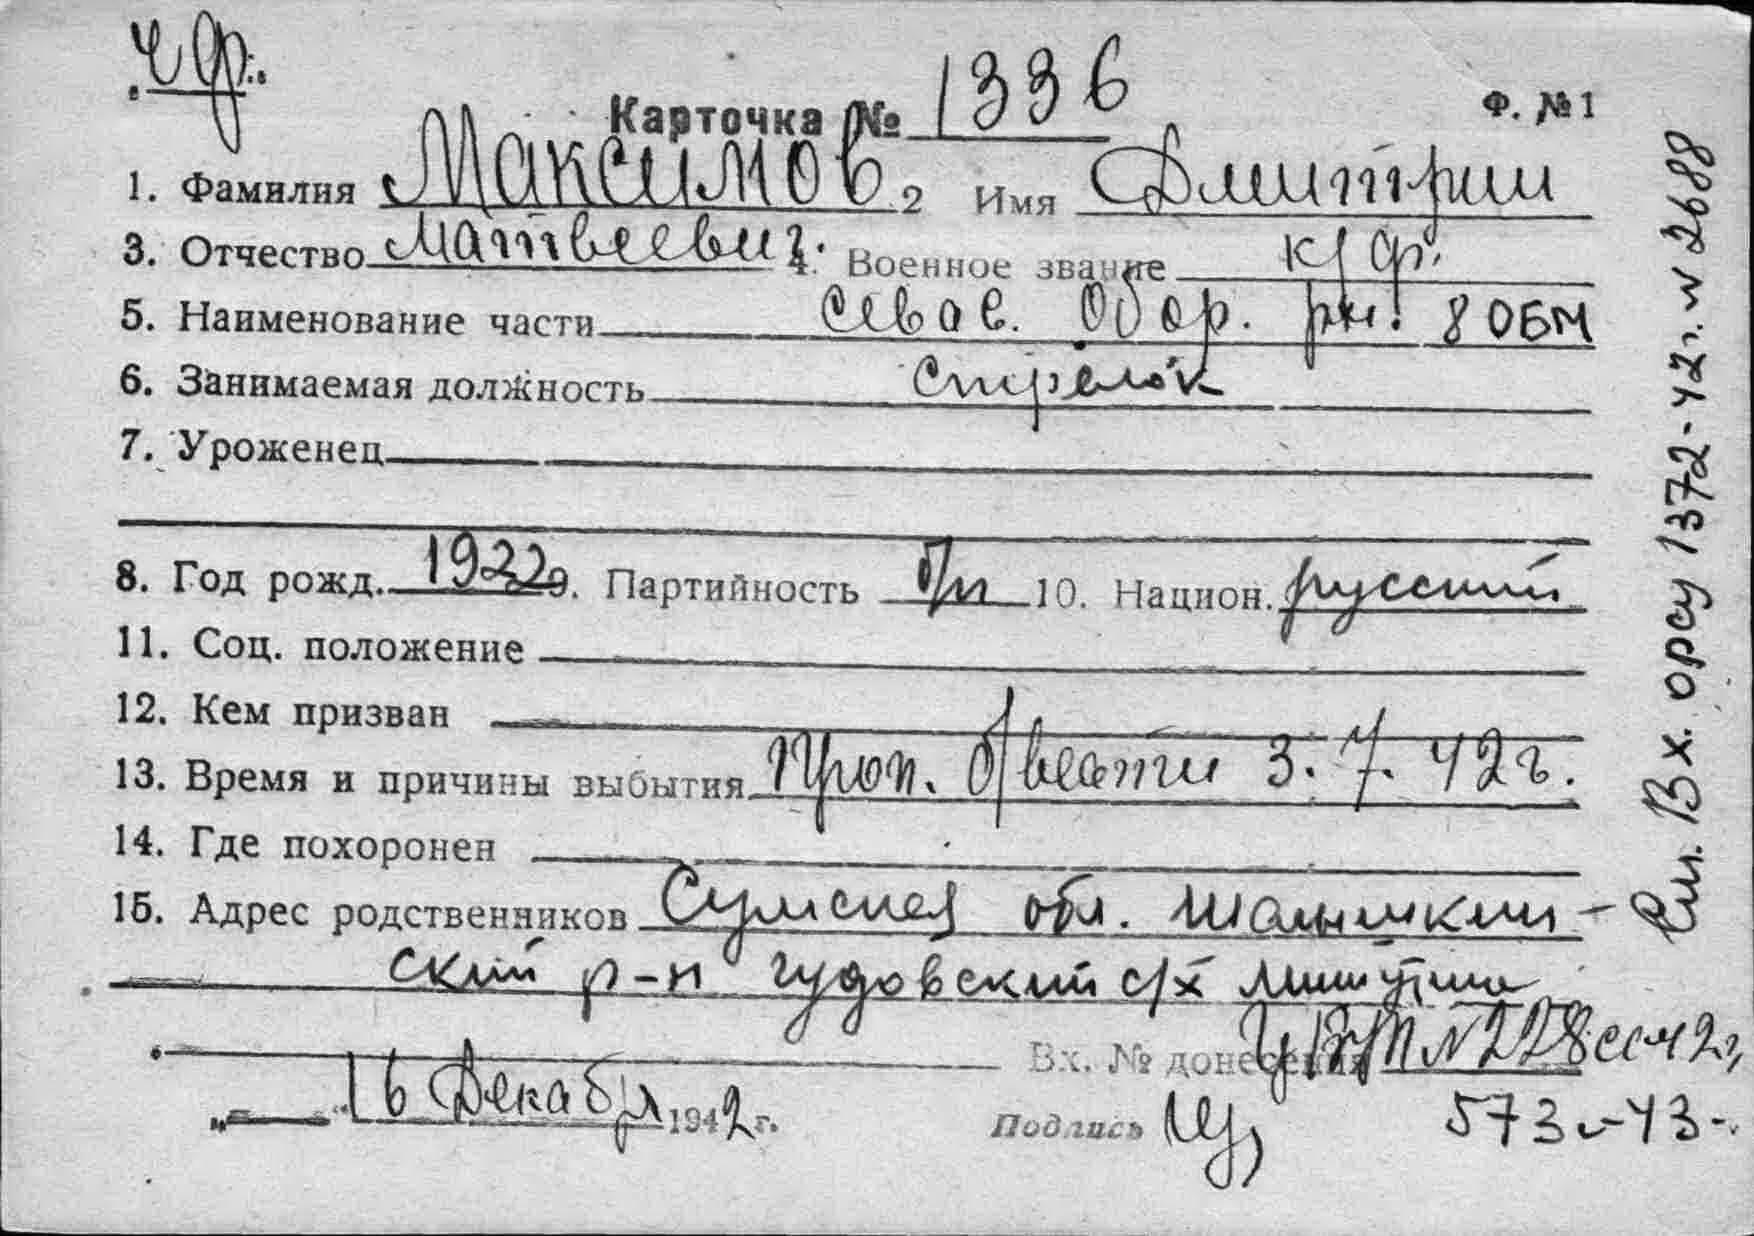 ч ф.
Карточка № 1336
Ф. №1
1. Фамилия Максимов 2 Имя Дмитрий
3. Отчество Матвеевич 4. Военное звание к/ф.
5. Наименование части Севас. Обор. рн. 8 ОБМ
6. Занимаемая должность Стрелок
7. Уроженец
8. Год рожд. 1922 9. Партийность б/п 10. Национ. русский
11. Соц. положение
12. Кем призван
13. Время и причины выбытия Проп. б/вести 3.7.42г.
14. Где похоронен
15. Адрес родственников Сумская обл. Шалыгкин-
ский р-н гудовский с/х
Вх. № донесения №228сс 42г,
„ “ 16 Декабр 1942г. Подпись 573с-43-
Вх. оргу 1372-42г. № 2688